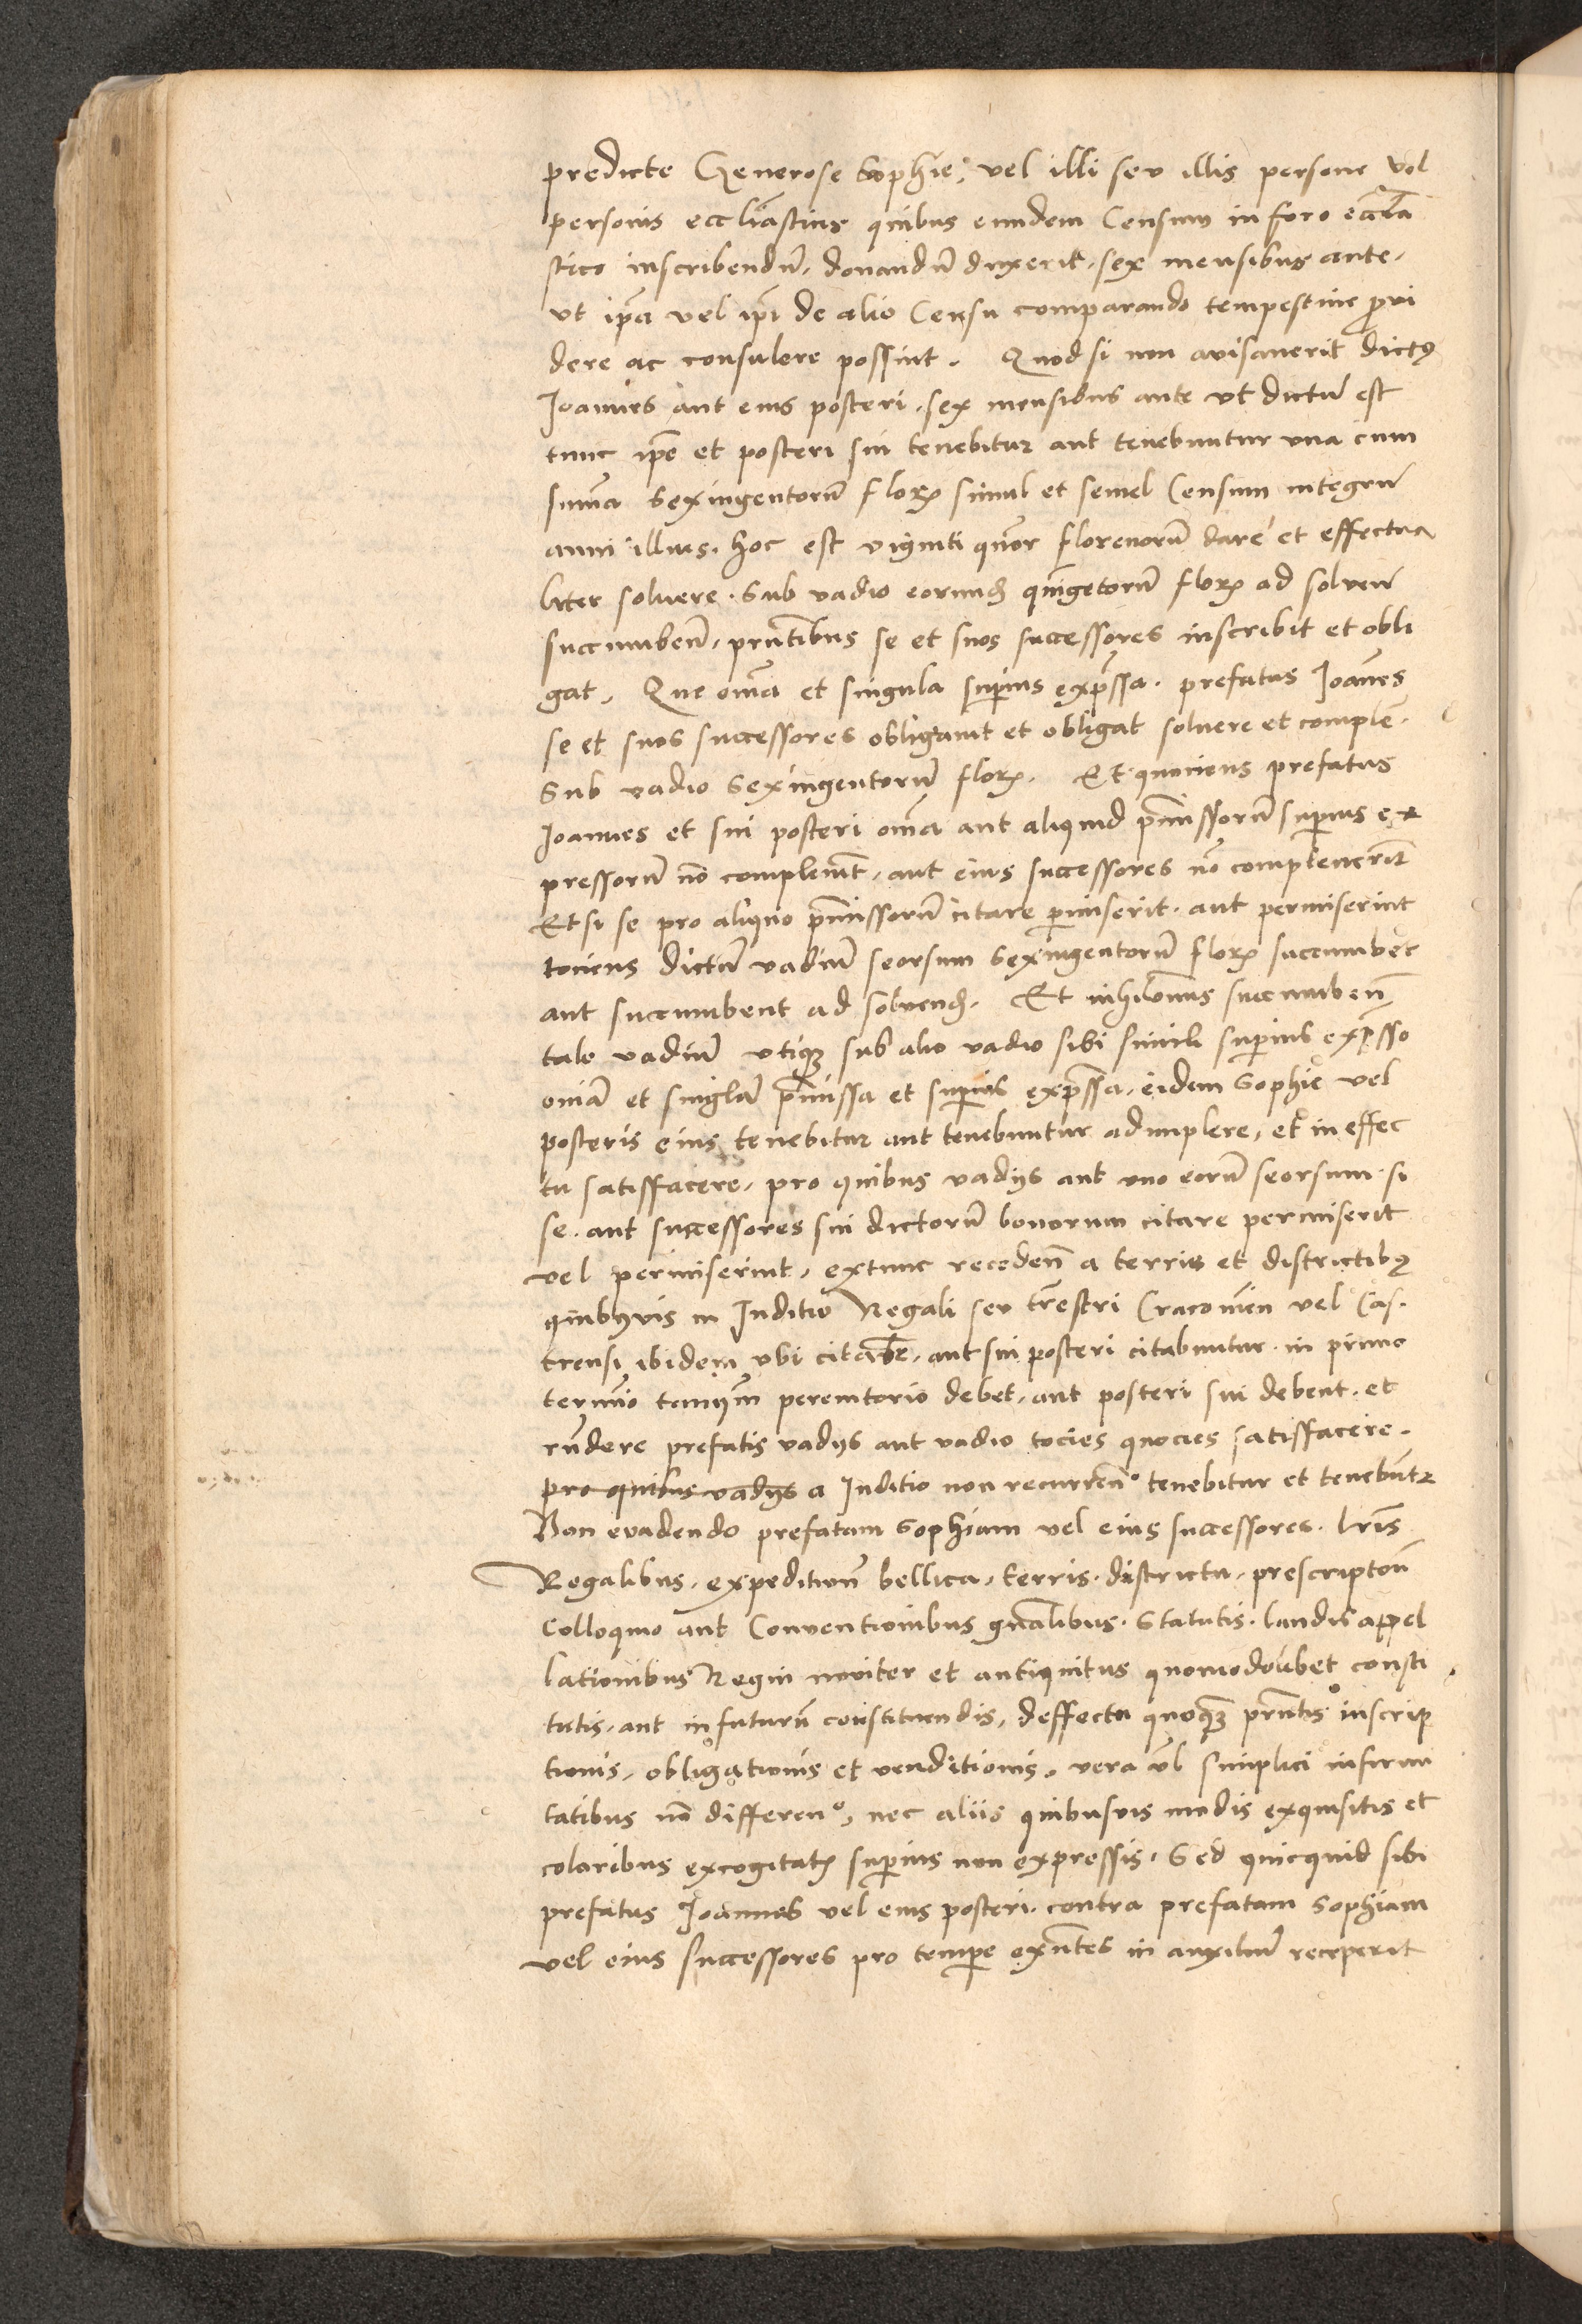 predicte Generose Sophie, vel illi seu illis persone vel
personis eccliasticis quibus eundem Censum in foro eccłia
stico inscribendũ, donandũ duxerit, sex mensibus ante,
vt ip̃a vel ip̃i de alio Censu comparando tempestiue proui
dere ac consulere possint. Quod si non auisauerit dictꝰ
Joannes aut eius posteri, sex mensibus ante vt dictũ est
tunc ip̃e et posteri sui tenebitur aut tenebuntur vna cum
sum̃a Sexingentorũ floꝝ simul et semel Censum integrũ
anni illius, hoc est viginti quor̃ florenorũ dare et effectua
liter soluere. Sub vadio eorundꝫ quingẽtorũ floꝝ ad soluen̄
succumben̄, pñtibus se et suos successores inscribit et obli
gat. Que om̃ia et singula sup̃ius exp̃ssa, prefatus Joañes
se et suos successores obligauit et obligat soluere et complẽ.
Sub vadio Sexingentorũ floꝝ. Et quociens prefatus
Joannes et sui posteri om̃ia aut aliquid p̃missorũ sup̃ius ex
pressorũ nõ compleuit, aut eius successores nõ compleuerit
Et si se pro aliquo p̃missorũ citare p̃miserit, aut permiserint
tociens dictũ vadiũ seorsum Sexingentorũ floꝝ succumbet
aut succumbent ad soluendꝫ. Et nihilom̃us succumben̄
tale vadiũ vtiqꝫ sub alio vadio sibi simili sup̃ius exp̃sso
om̃ia et singl̃a p̃missa et sup̃ius exp̃ssa, eidem Sophie vel
posteris eius tenebitur aut tenebuntur adimplere, et in effec
tu satisffacere, pro quibus vadijs aut vno eorũ seorsum, si
se, aut successores sui dictorũ bonorum citare permiserit
vel permiserint, extunc receden̄ a terris et districtibꝰ
quibusuis in Juditio Regali seu tr̃estri Cracouien̄ vel Cas-
trensi, ibidem vbi citabr̃, aut sui posteri citabuntur, in primo
termĩo tamqm̃ peremtorio debet, aut posteri sui debent, et
rñdere prefatis vadijs aut vadio tocies quocies satisffacere.
pro quibus vadijs a Juditio non recurren̄ᵒ tenebitur et tenebũtr
Non euadendo prefatam Sophiam vel eius successores. lr̃is
Regalibus, expeditioñ bellica, terris, districtu, prescriptoñ
Colloquio aut Conuentionibus gñalibus, Statutis, laudis appel
lationibus Regni nouiter et antiquitus quomodolibet consti
tutis, aut in futurũ constituendis, deffectu quoqꝫ pñtis inscrip
tionis, obligationis et venditionis, vera vl̃ simplici infirmi
tatibus nõ differen̄ᵒ, nec aliis quibusuis modis exquisitis et
coloribus excogitatꝭ sup̃ius non expressis, Sed quicquid sibi
prefatus Joannes vel eius posteri, contra prefatam Sophiam
vel eius successores pro temp̃e exñtes in auxiliũ receperit